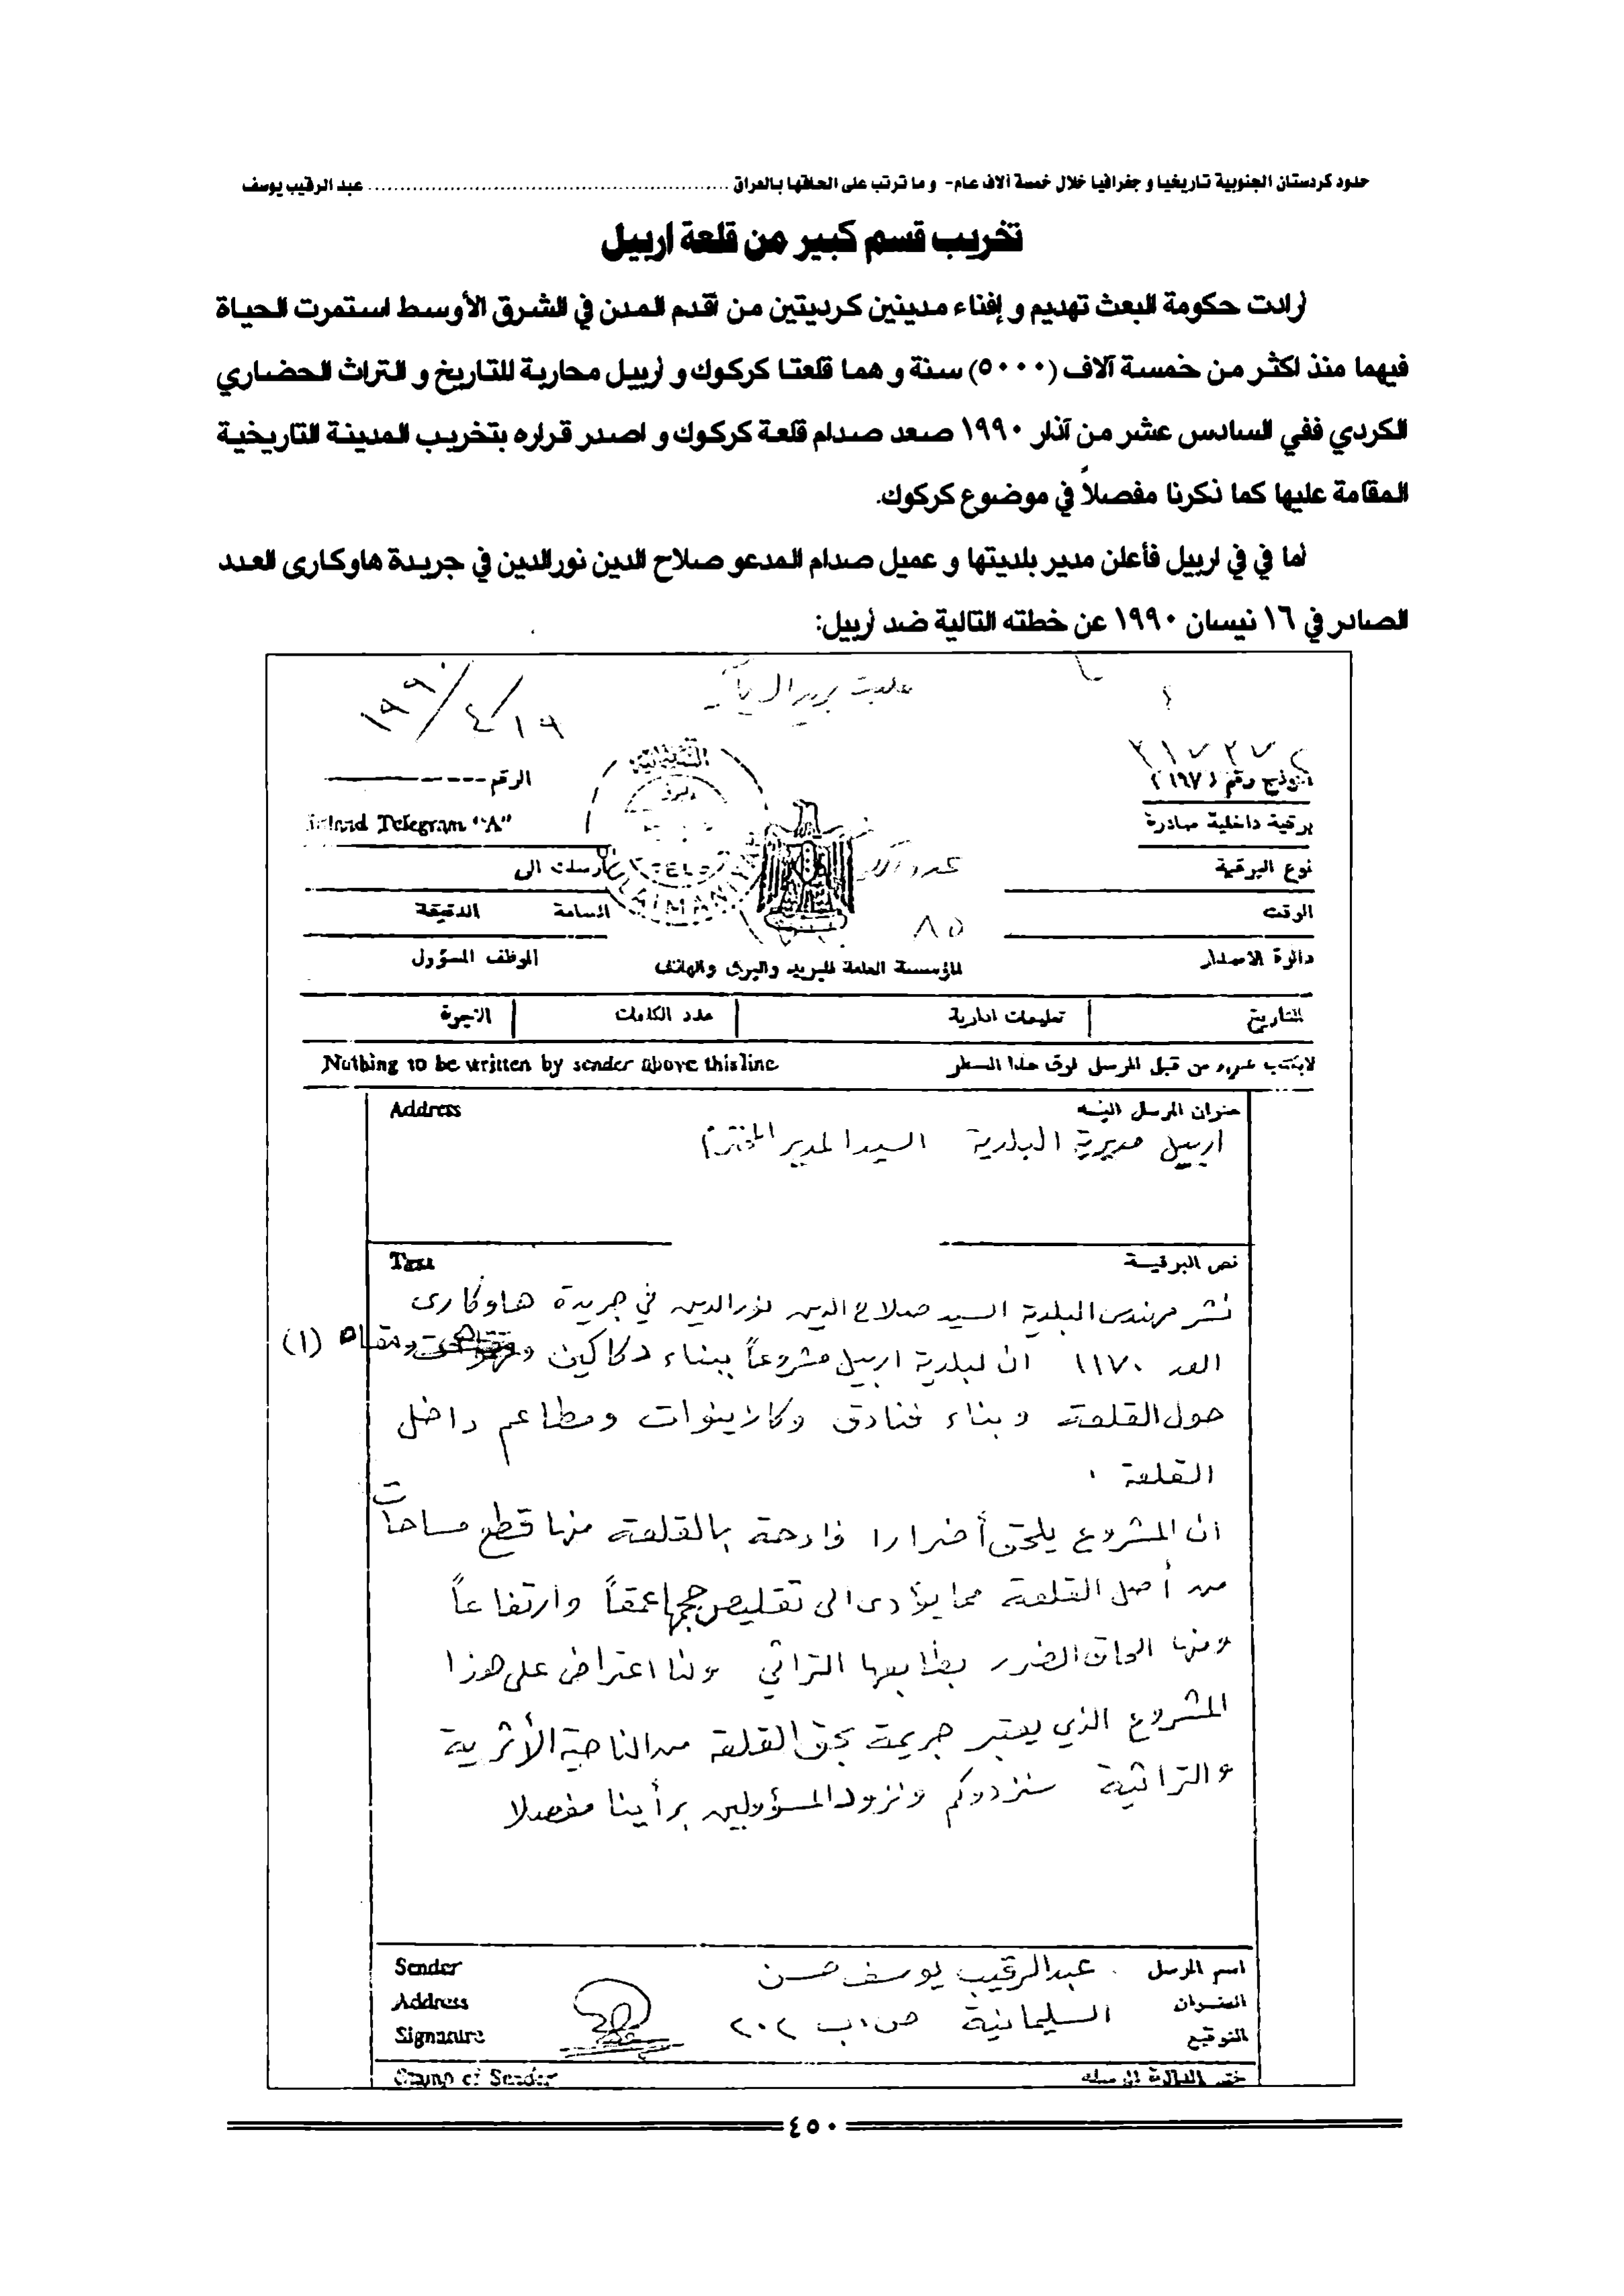 حدود كردستان الجنوبية تاريخيا و جغرافيا خلال خمسة آلاف عام- و ما ترتب على الحاقها بالعراق ........ عبد الرقيب يوسف
تخريب قسم كبير من قلعة اربيل
أرادت حكومة البعث تهديم و إفناء مدينين كرديتين من أقدم المدن في الشرق الأوسط استمرت الحياة
فيهما منذ اكثر من خمسة آلاف (٥٠٠٠) سنة و هما قلعتا كركوك و أربيل محاربة للتاريخ و التراث الحضاري
الكردي ففي السادس عشر من آذار ١٩٩٠ صعد صدام قلعة كركوك و اصدر قراره بتخريب المدينة التاريخية
المقامة عليها كما ذكرنا مفصلاً في موضوع كركوك.
أما في في اربيل فأعلن مدير بلديتها و عميل صدام المدعو صلاح الدين نورالدين في جريدة هاوكارى العدد
الصادر في ١٦ نيسان ١٩٩٠ عن خطته التالية ضد أربيل:
١٩٩٠/٤/١٩
نموذج رقم (١٩٧)
الرقم
برقية داخلية صادرة
Inland Telegram "A"
نوع البرقية
ارسلت الى
الوقت
الساعة الدقيقة
٨٥
دائرة الاصدار
المؤسسة العامة للبريد والبرق والهاتف
الموظف المسؤول
التاريخ تعليمات ادارية عدد الكلمات الاجرة
لايكتب شيء من قبل المرسل فوق هذا السطر
Nothing to be written by sender above this line
عنوان المرسل اليه Address
اربيل مديرية البلدية السيد المدير المحترم
نص البرقية Text
نشر مهندس البلدية السيد صلاح الدين نورالدين في جريدة هاوكارى
العدد ١١٧٠ ان لبلدية اربيل مشروعاً ببناء دكاكين ومقاه (١)
حول القلعة وبناء فنادق وكازينوات ومطاعم داخل
القلعة .
ان المشروع يلحق أضرارا فادحة بالقلعة منها قطع مساحات
من أصل القلعة مما يؤدى الى تقليص حجمها عمقاً وارتفاعاً
ومنها الحاق الضرر بطابعها التراثي ولنا اعتراض على هذا
المشروع الذي يعتبر جريمة بحق القلعة من الناحية الأثرية
والتراثية سنزودكم ونزود المسؤولين برأينا مفصلا
اسم المرسل عبدالرقيب يوسف حسن Sender
العنوان السليمانية ص.ب ٢٠٢ Address
التوقيع Signature
ختم الدائرة المرسلة Stamp of Sender
٤٥٠